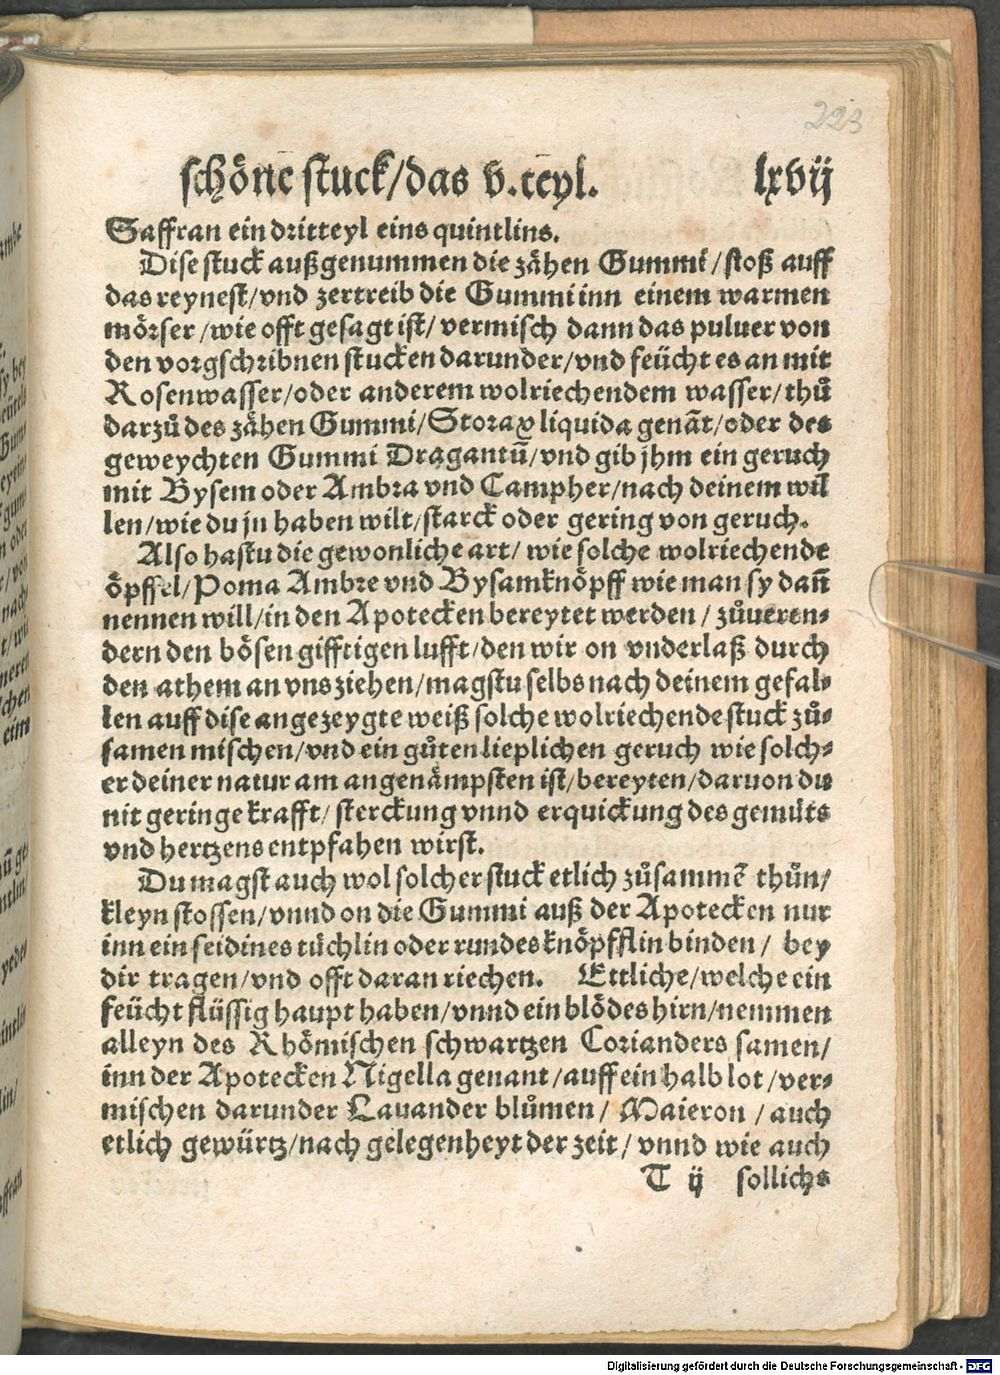 223
schöne stuck/das v.teyl. lxvij
Saffran ein dritteyl eins quintlins.
Dise stuck außgenummen die zähen Gummi/stoß auff
das reynest/vnd zertreib die Gummi inn einem warmen
mörser/wie offt gesagt ist/vermisch dann das puluer von
den vorgschribnen stucken darunder/vnd feücht es an mit
Rosenwasser/oder anderem wolriechendem wasser/thů
darzů des zähen Gummi/Storax liquida genãt/oder des
geweychten Gummi Dragantũ/vnd gib jhm ein geruch
mit Bysem oder Ambra vnd Campher/nach deinem wil
len/wie du jn haben wilt/starck oder gering von geruch.
Also hastu die gewonliche art/wie solche wolriechende
öpffel/Poma Ambre vnd Bysamknöpff wie man sy dañ
nennen will/in den Apotecken bereytet werden/zůueren⸗
dern den bösen gifftigen lufft/den wir on vnderlaß durch
den athem an vns ziehen/magstu selbs nach deinem gefal⸗
len auff dise angezeygte weiß solche wolriechende stuck zů⸗
samen mischen/vnd ein gůten lieplichen geruch wie solch⸗
er deiner natur am angenämpsten ist/bereyten/daruon du
nit geringe krafft/sterckung vnnd erquickung des gemüts
vnd hertzens entpfahen wirst.
Du magst auch wol solcher stuck etlich zůsammẽ thůn/
kleyn stossen/vnnd on die Gummi auß der Apotecken nur
inn ein seidines tüchlin oder rundes knöpfflin binden/bey
dir tragen/vnd offt daran riechen. Ettliche/welche ein
feücht flüssig haupt haben/vnnd ein blödes hirn/nemmen
alleyn des Rhömischen schwartzen Corianders samen/
inn der Apotecken Nigella genant/auff ein halb lot/ver⸗
mischen darunder Lauander blůmen/Maieron/auch
etlich gewürtz/nach gelegenheyt der zeit/vnnd wie auch
T ij sollichs
Digitalisierung gefördert durch die Deutsche Forschungsgemeinschaft - DFG